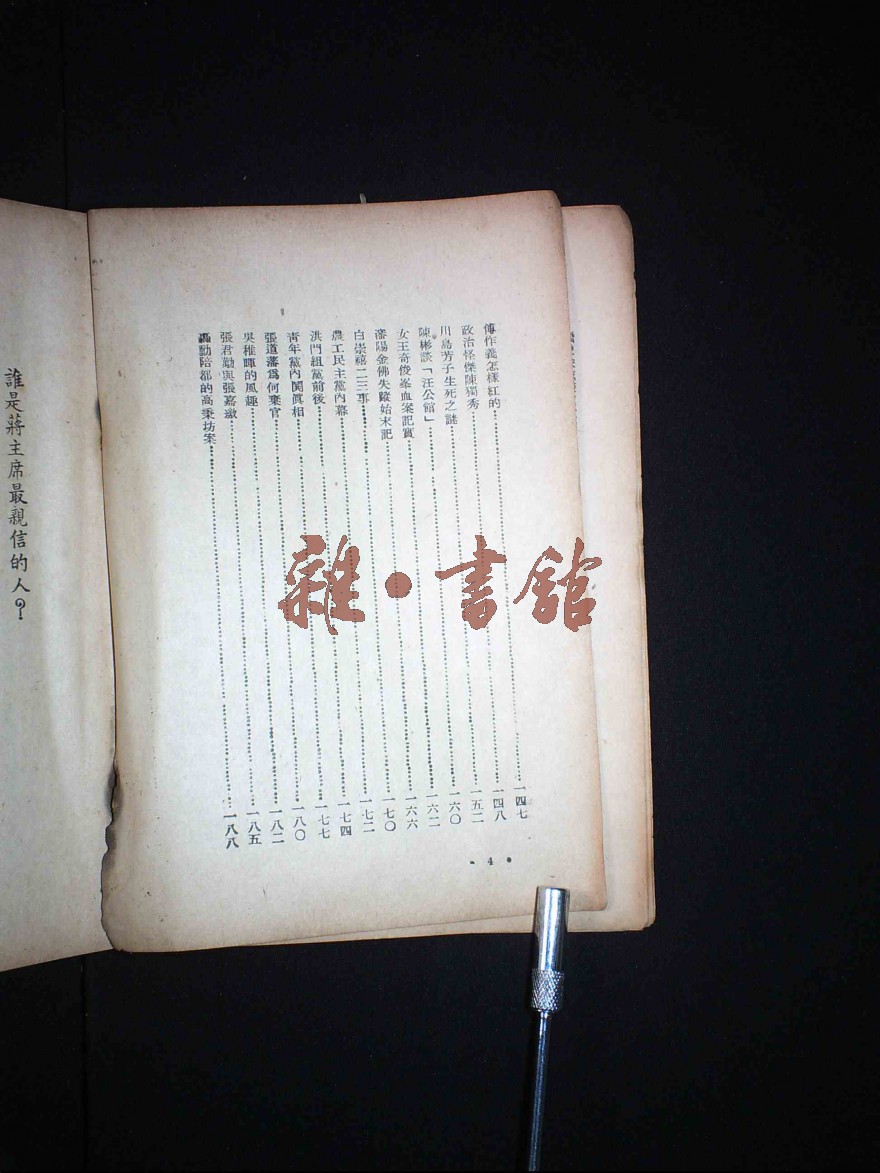 傅作義怎樣紅的……一四七
政治怪傑陳獨秀……一四八
川島芳子生死之謎……一五二
陳彬談「汪公館」……一六〇
女王奇俊峯血案記實……一六二
瀋陽金佛失蹤始末記……一六六
白崇禧二三事……一七〇
農工民主黨內幕……一七二
洪門組黨前後……一七四
青年黨內鬨眞相……一七七
張道藩爲何棄官……一八〇
吳稚暉的風趣……一八二
張君勱與張嘉璈……一八五
轟動陪都的高秉坊案……一八八
• 4 •
誰是蔣主席最親信的人？
雜·書館